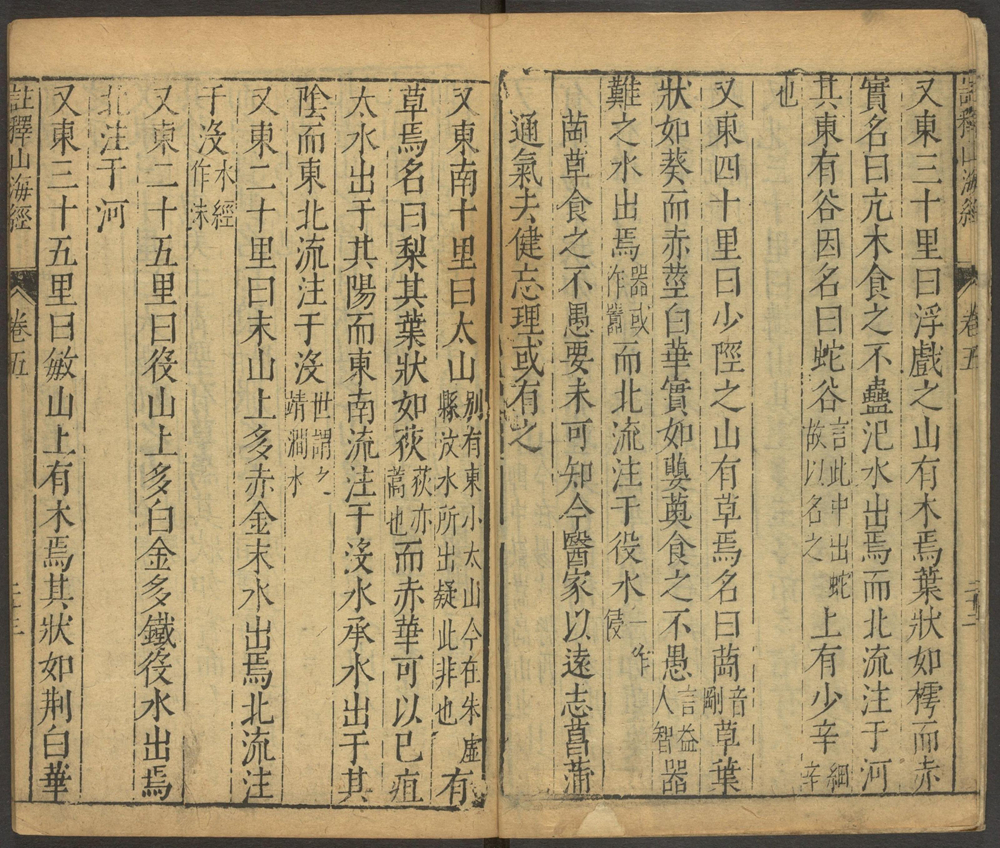 又東三十里曰浮戲之山有木焉葉狀如樗而赤
實名曰亢木食之不蠱汜水出焉而北流注于河
其東有谷因名曰蛇谷言此中出蛇故以名之上有少辛細辛
也
又東四十里曰少陘之山有草焉名曰䓘音剛草葉
狀如葵而赤莖白華實如蘡薁食之不愚言益人智器
難之水出焉器或作囂而北流注于役水一作侵
䓘草食之不愚要未可知今醫家以遠志菖蒲
通氣去健忘理或有之
又東南十里曰太山別有東小太山今在朱虛縣汶水所出疑此非也有
草焉名曰梨其葉狀如荻荻亦蒿也而赤華可以已疽
太水出于其陽而東南流注于沒水承水出于其
陰而東北流注于沒世謂之靖澗水
又東二十里曰末山上多赤金末水出焉北流注
于沒水經作沬
又東二十五里曰役山上多白金多鐵役水出焉
北注于河
又東三十五里曰敏山上有木焉其狀如荆白華
註釋山海經 卷五